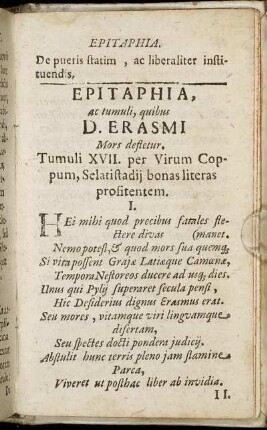 EPITAPHIA.
De pueris ſtatim , ac liberaliter inſti-
tuendis,
EPITAPHIA,
ac tumuli, quibus
D. ERASMI
Mors defletur.
Tumuli XVII. per Virum Cop-
pum, Selatiſtadij bonas literas
profitentem.
I.
HEi mihi quod precibus fatales fle-
ctere divas (manet.
Nemo poteſt, & quod mors ſua quemq;
Si vita poſſent Grajæ Latiæque Camœnæ,
Tempora Neſtoreos ducere ad usq; dies.
Unus qui Pylij ſuperaret ſecula penſi ,
Hic Deſiderius dignus Erasmus erat.
Seu mores , vitamque viri lingvamque
diſertam,
Seu ſpectes docti pondera judicij.
Abſtulit hunc terris pleno jam ſtamine
Parca,
Viveret ut poſthac liber ab invidia.
II.